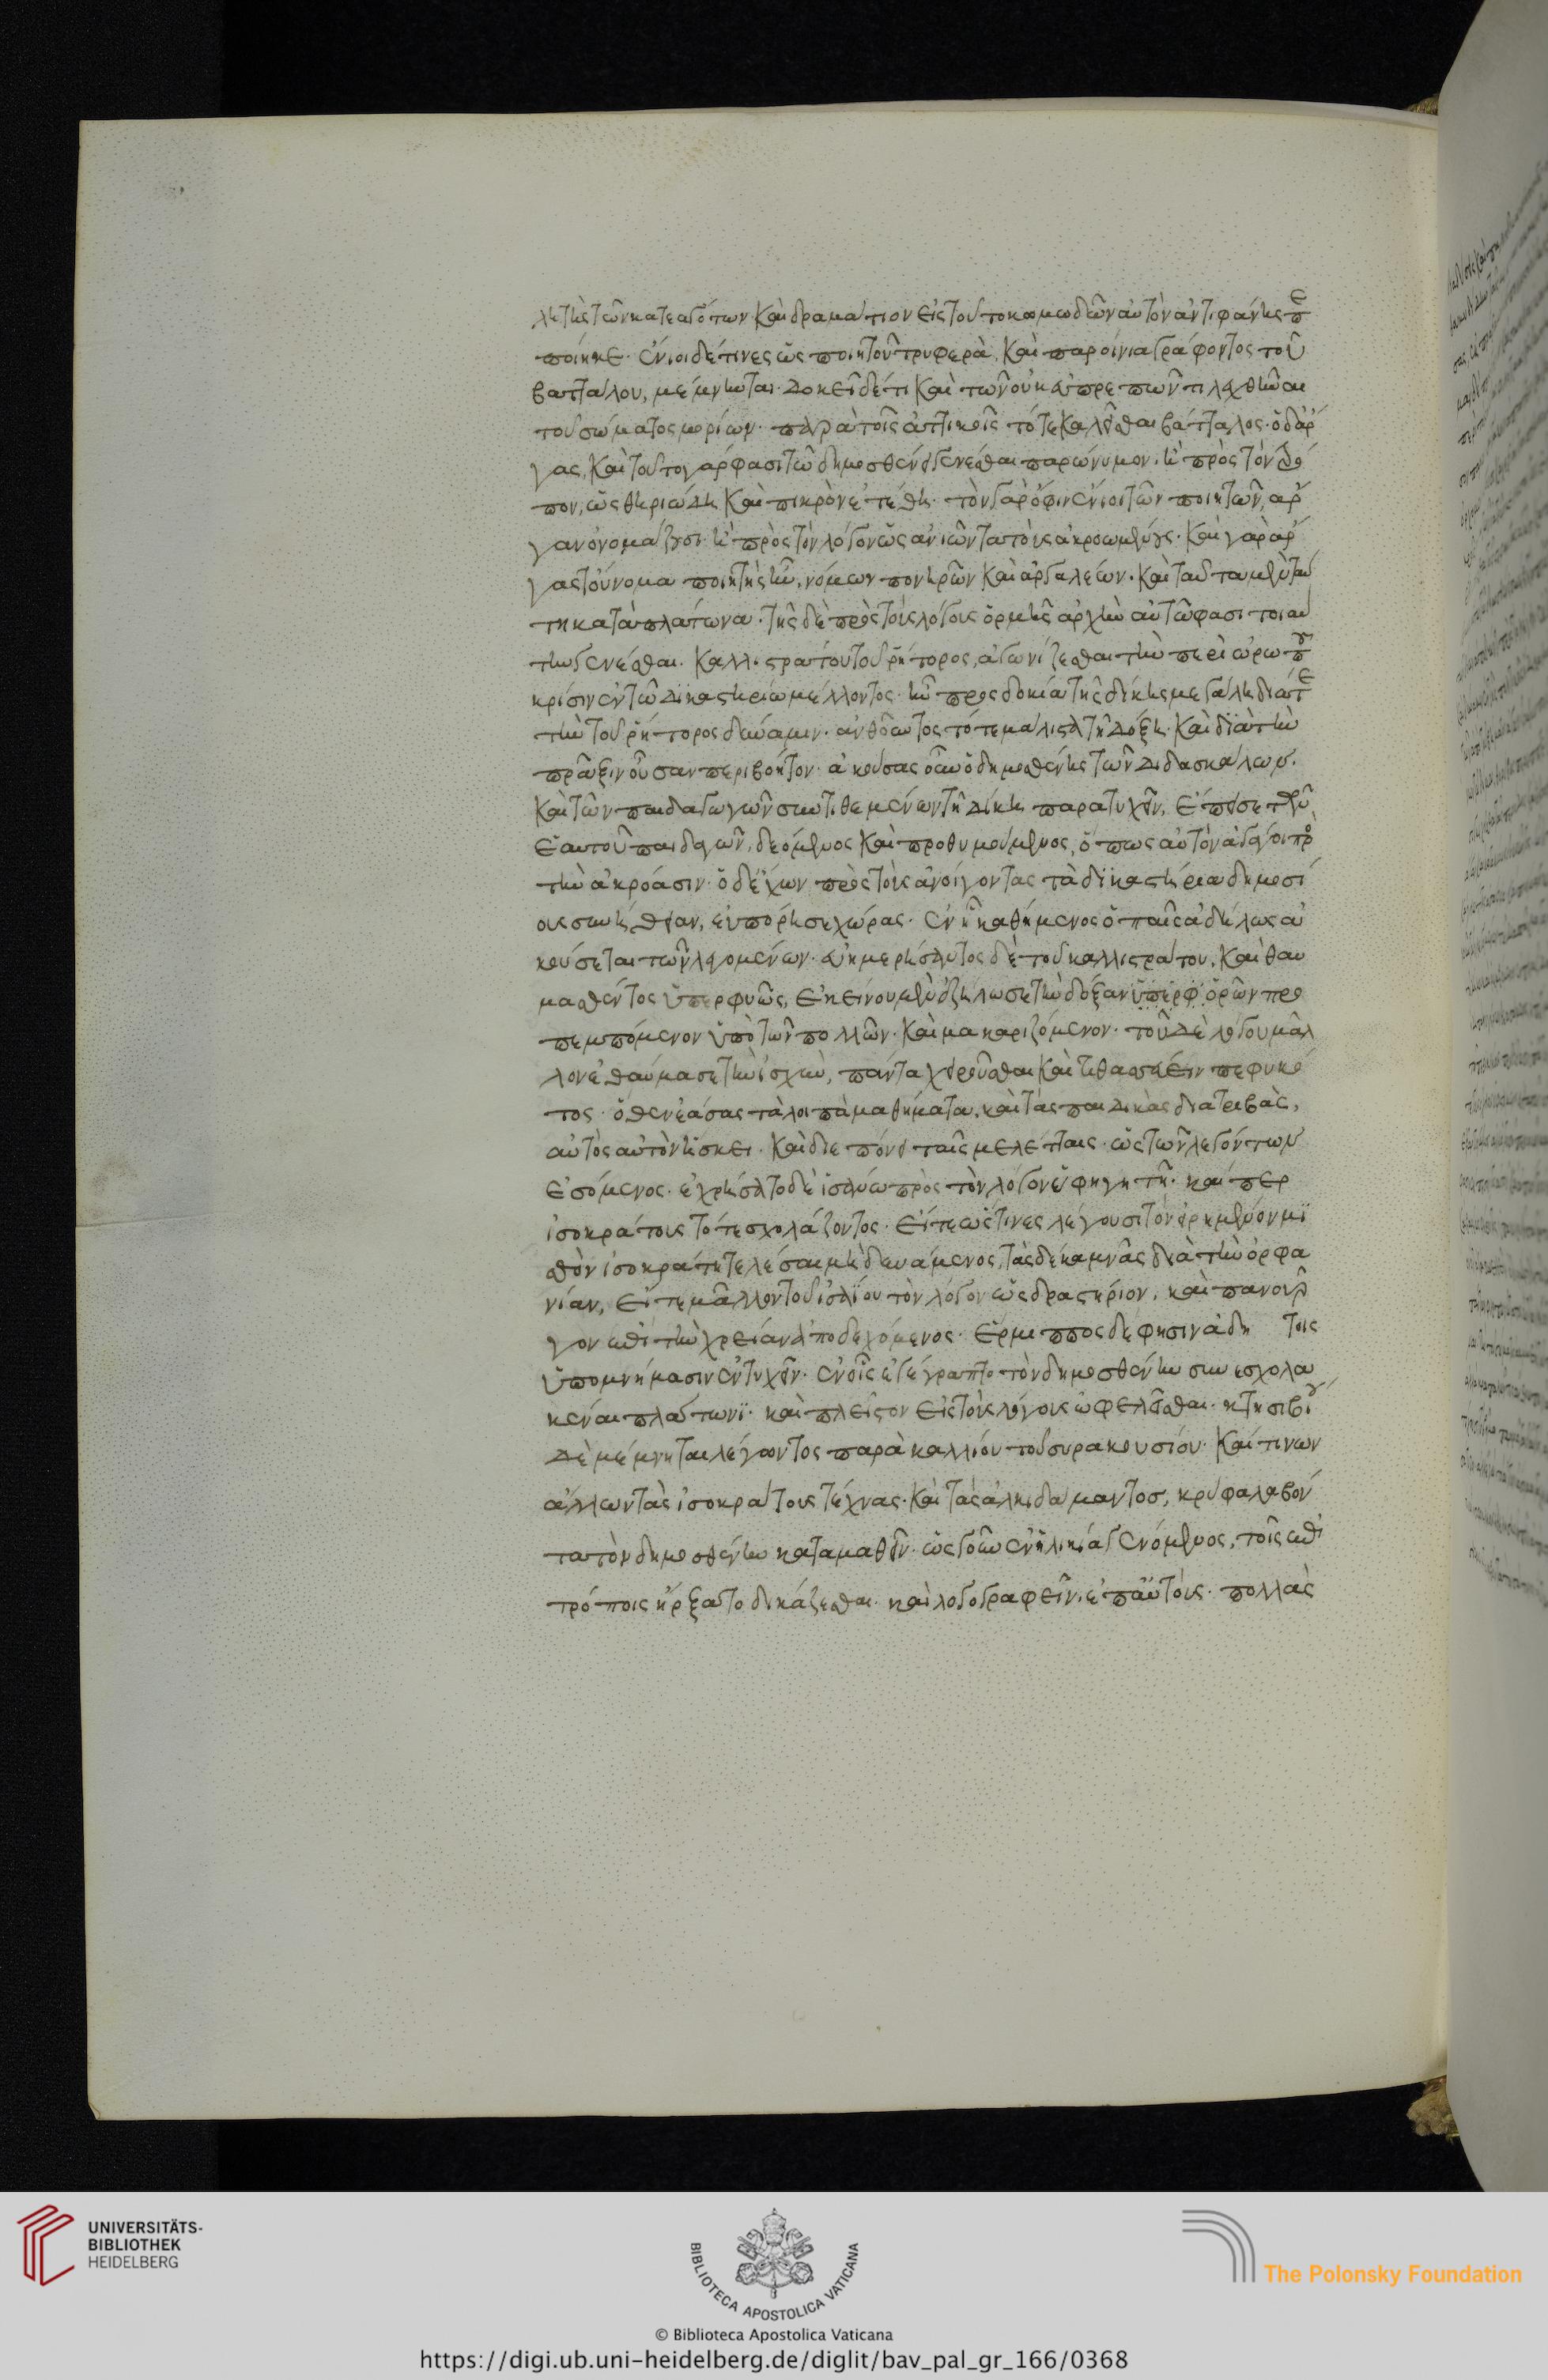 λητὴς τῶν κατεαγότων. καὶ δραμάτιον εἰς τοῦτο κωμωδῶν αὐτὸν ἀντιφάνης πε
ποίηκε. ἔνιοι δέ τινες ὡς ποιητοῦ τρυφερὰ, καὶ παροίνια γράφοντος τοῦ
βαττάλου, μέμνηνται. δοκεῖ δέ τι καὶ τῶν οὐκ εὐπρεπῶν τι λεχθῆναι
τοῦ σώματος μορίων. παρὰ τοῖς ἀττικοῖς τότε καλεῖσθαι βάτταλος. ὁ δ ἀρ
γας, καὶ τοῦτο γάρ φασι τῶ δημοσθένει γενέσθαι παρώνυμον. ἢ πρὸς τὸν τρό
πον, ὡς θηριώδη καὶ πικρὸν ἐτέθη. τὸν γὰρ ὄφιν ἔνιοι τῶν ποιητῶν, ἀρ
γαν ὀνομάζουσι. ἢ πρὸς τὸν λόγον ὡς ἀνιῶντα τοὺς ἀκροωμένους. καὶ γὰρ ἀρ
γας τοὔνομα ποιητὴς ἦν, νόμων πονηρῶν καὶ ἀργαλέων. καὶ ταῦτα μὲν ταύ
τη κατὰ πλάτωνα. τῆς δὲ πρὸς τοὺς λόγους ὁρμῆς ἀρχὴν αὐτῶ φασι τοιαύ
την γενέσθαι. καλλιστράτου τοῦ ῥήτορος, ἀγωνίζεσθαι τὴν περὶ ὠρωποῦ
κρίσιν ἐν τῶ δικαστηρίω μέλλοντος. ἦν προσδοκία τῆς δίκης μεγάλη διά τε
τὴν τοῦ ῥήτορος δύναμιν. ἀνθοῦντος τότε μάλιστα τῆ δόξη. καὶ διὰ τὴν
πρᾶξιν οὖσαν περιβόητον. ἀκούσας οὖν ὁ δημοσθένης τῶν διδασκάλων.
καὶ τῶν παιδαγωγῶν συντιθεμένων τῆ δίκη παρατυχεῖν, ἔπεισε τὸν
ἑαυτοῦ παιδαγωγὸν, δεόμενος καὶ προθυμούμενος, ὅπως αὐτὸν ἀγάγοι πρὸς
τὴν ἀκρόασιν. ὁ δ ἔχων πρὸς τοὺς ἀνοίγοντας τὰ δικαστήρια δημοσί
ους συνήθειαν, εὐπόρησε χώρας. ἐν ἧ καθήμενος ὁ παῖς ἀδήλως ἀ
κούσεται τῶν λεγομένων. εὐημερήσαντος δὲ τοῦ καλλιστράτου, καὶ θαυ
μασθέντος ὑπερφυῶς, ἐκείνου μὲν ἐζήλωσε τὴν δόξαν ὑπερφ ὁρῶν προ
πεμπόμενον ὑπὸ τῶν πολλῶν. καὶ μακαριζόμενον. τοῦ δὲ λόγου μᾶλ
λον ἐθαύμασε τὴν ἰσχὺν, πάντα χειροῦσθαι καὶ τιθασσεύειν πεφυκό
τος. ὅθεν ἐάσας τὰ λοιπὰ μαθήματα, καὶ τὰς παιδικὰς διατριβὰς,
αὐτὸς αὑτὸν ἤσκει. καὶ διεπόνει ταῖς μελέταις. ὡς τῶν λεγόντων
ἐσόμενος. ἐχρήσατο δὲ ἰσαίω πρὸς τὸν λόγον ὑφηγητῆ. καίπερ
ἰσοκράτους τότε σχολάζοντος. εἴτε ὥς τινες λέγουσι τὸν ὡρισμένον μι
σθὸν ἰσοκράτη τελέσαι μὴ δυνάμενος, τὰς δέκα μνᾶς διὰ τὴν ὀρφα
νίαν, εἴτε μᾶλλον τοῦ ἰσαίου τὸν λόγον ὡς δραστήριον, καὶ πανοῦρ
γον ἐπὶ τὴν χρείαν ἀποδεχόμενος. ἕρμιππος δέ φησιν ἀδη τοις
ὑπομνήμασιν ἐντυχεῖν. ἐν οἷς ἐγέγραπτο τὸν δημοσθένην συνεσχολα
κέναι πλάτωνι. καὶ πλεῖστον εἰς τοὺς λόγους ὠφελεῖσθαι. κτησιβίου
δὲ μέμνηται λέγοντος παρὰ καλλίου τοῦ συρακουσίου. καί τινων
ἄλλων τὰς ἰσοκράτους τέχνας. καὶ τὰς ἀλκιδάμαντοσ, κρύφα λαβόν
τα τὸν δημοσθένην καταμαθεῖν. ὡς γοῦν ἐν ἡλικίᾳ γενόμενος, τοῖς ἐπι
τρόποις ἤρξατο δικάζεσθαι. καὶ λογογραφεῖν. ἐπ αὐτοὺς. πολλὰς
UNIVERSITÄTS-
BIBLIOTHEK
HEIDELBERG
BIBLIOTECA APOSTOLICA VATICANA
The Polonsky Foundation
© Biblioteca Apostolica Vaticana
https://digi.ub.uni-heidelberg.de/diglit/bav_pal_gr_166/0368